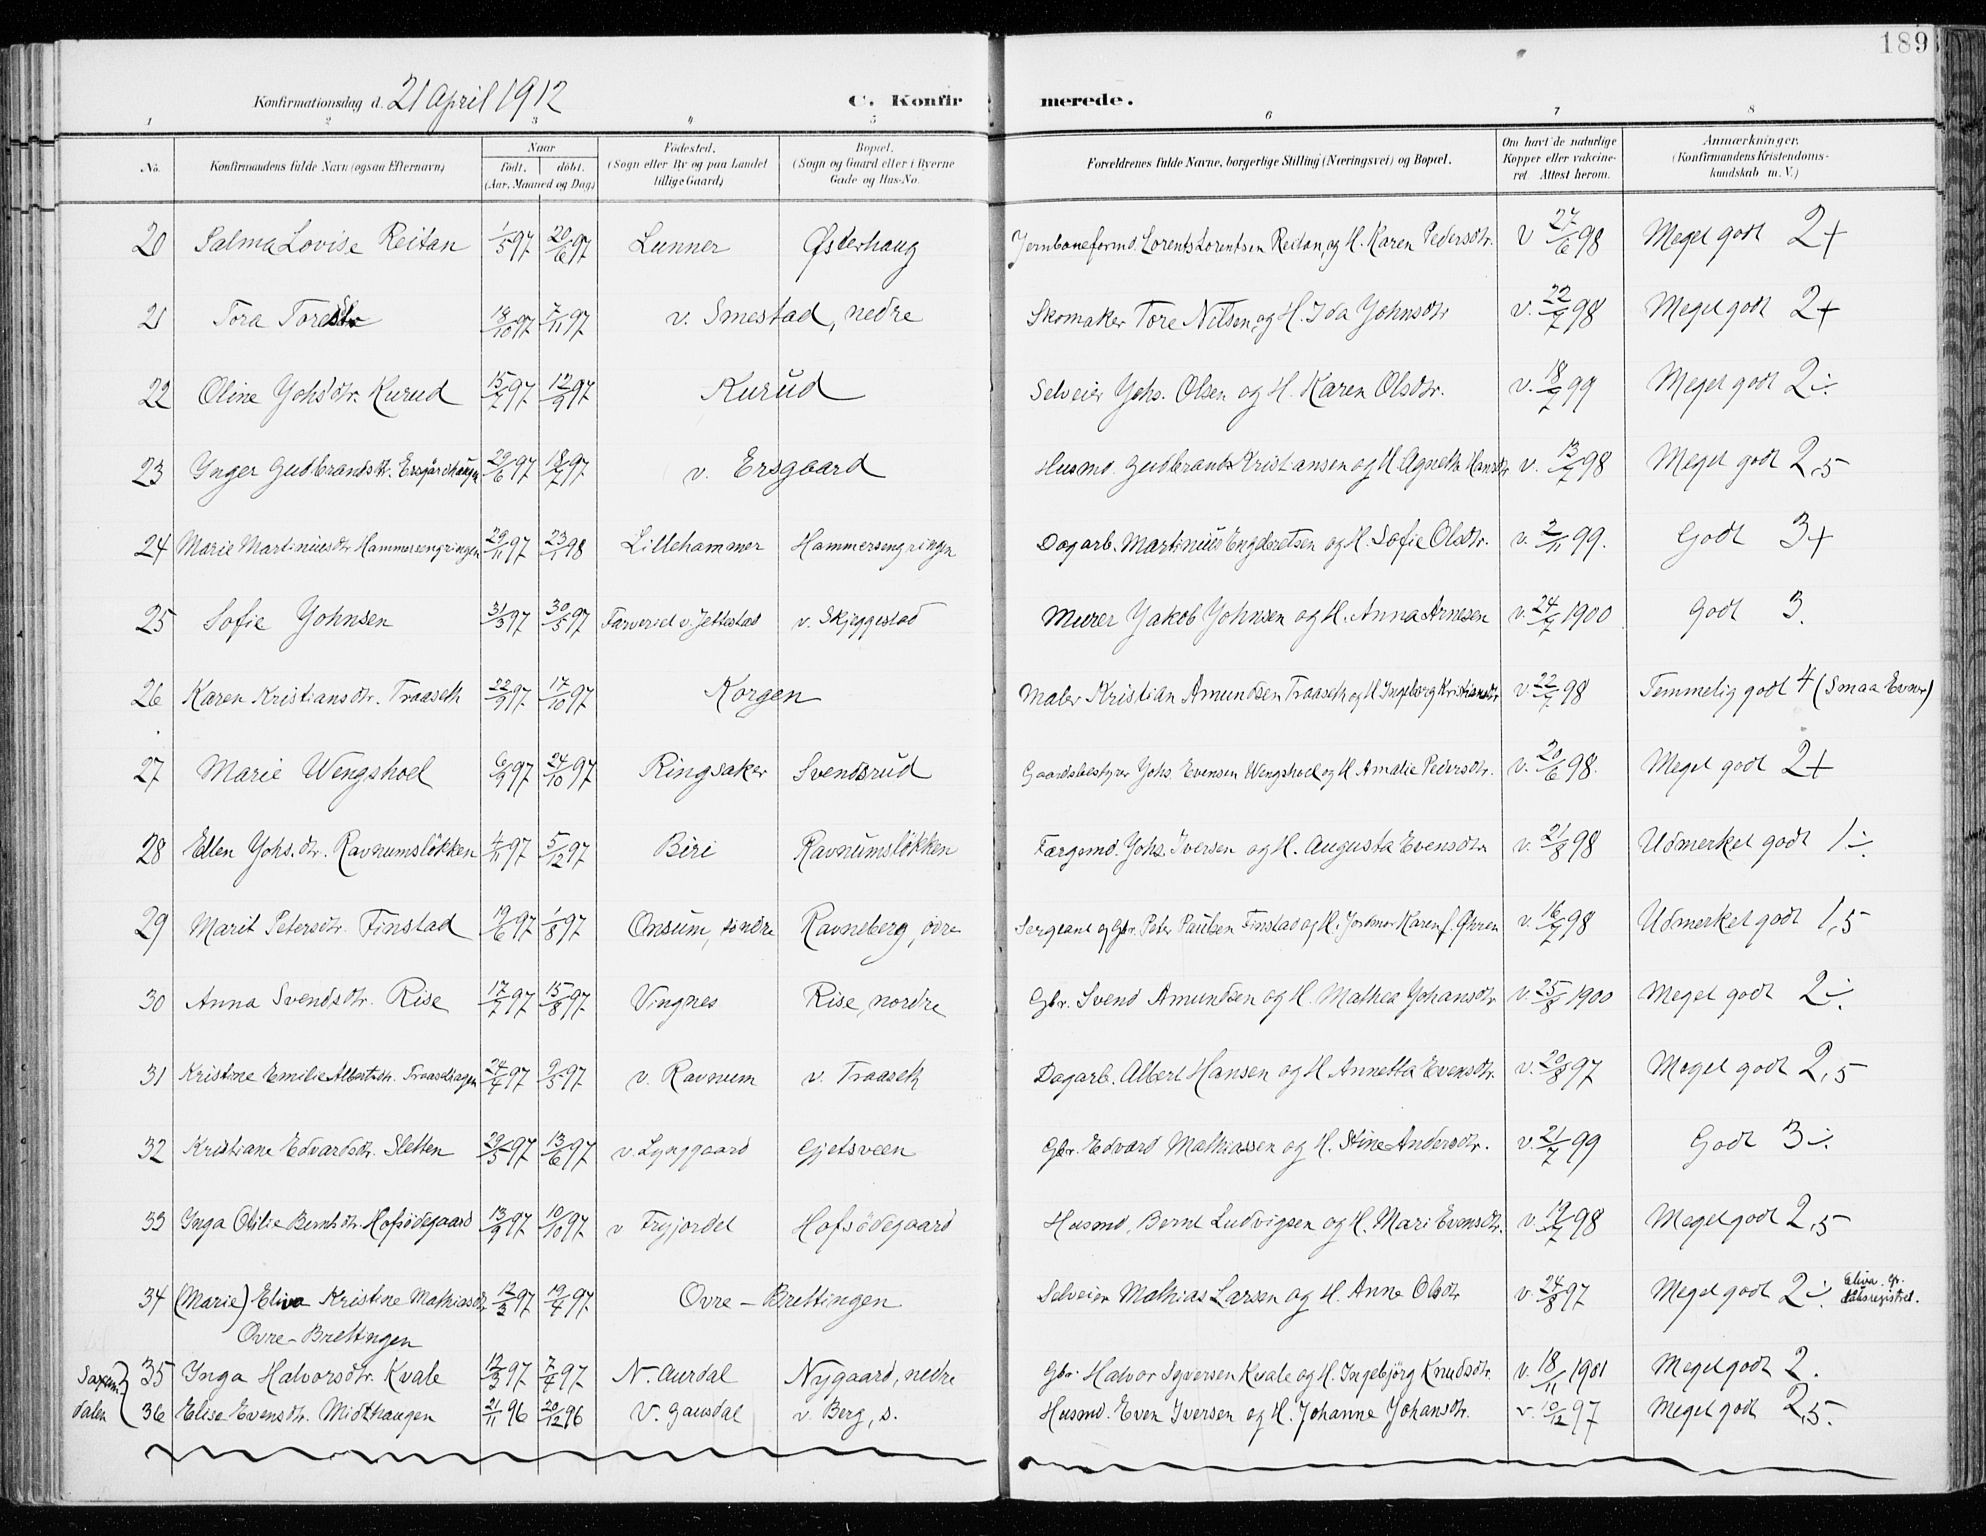 189
Konfirmationsdag d. 21 April 1912 C. Konfirmerede.
1 2 3 4 5 6 7 8
No. Konfirmandens fulde Navn (ogsaa Efternavn) Naar født, døbt. (Aar, Maaned og Dag) Fødested. (Sogn eller By og paa Landet tillige Gaard) Bopæl. (Sogn og Gaard eller i Byerne Gade og Hus-No. Forældrenes fulde Navne, borgerlige Stilling (Næringsvei) og Bopæl. Om havt de naturlige Kopper eller vakcineret. Attest herom. Anmærkninger. (Konfirmandens Kristendomskundskab m. V.)
20 Salma Lovise Reitan 1/5 97 20/6 97 Lunner Østerhaug Jernbaneformd. Lorents Lorentsen Reitan, og H. Karen Pedersdtr. v 27/6 98 Meget godt 2+
21 Tora Toresdtr 18/10 97 7/11 97 v. Smestad, nedre Skomaker Tore Nilsen, og H. Ida Johnsdtr v. 22/7 98 Meget godt 2+
22 Oline Johsdtr. Kurud 15/7 97 12/9 97 Kurud Selveier Johs. Olsen og H. Karen Olsdtr. v. 18/7 99 Meget godt 2÷
23 Inger Gudbrandsdtr. Ersgårdhaugen 29/6 97 18/7 97 v. Ersgaard Husmd. Gudbrand Kristiansen og H. Agnethe Hansdtr v. 13/7 98 Meget godt 2,5
24 Marie Martiniusdtr Hammersengringen 29/11 97 23/1 98 Lillehammer Hammersengringen Dagarb. Martinius Engebretsen og H. Sofie Olsdtr. v. 2/11 99. Godt 3+
25 Sofie Johnsen 31/3 97 30/5 97 Farveriet v. Jettestad v. Skjeggestad Murer Jakob Johnsen og H. Anna Arnesen v. 24/7 1900 Godt 3.
26 Karen Kristiansdtr. Traaseth 22/9 97 17/10 97 Korgen Maler Kristian Amundsen Traaseth og H Ingeborg Kristiansdtr v. 22/7 98 Temmelig godt 4 (Smaa Evner)
27 Marie Wengshoel 6/9 97 24/10 97 Ringsaker Svendsrud Gaardsbestyrer Johs. Evensen Wengshoel og H Amalie Pedersdtr. v. 20/6 98. Meget godt 2+
28 Ellen Johs.dtr. Ravnumsløkken 4/11 97 5/12 97 Biri Ravnumsløkken Færgemd. Johs. Iversen og H. Augusta Evensdtr v. 21/8 98 Udmerket godt 1÷
29 Marit Petersdtr. Finstad 19/6 97 1/8 97 Onsum, søndre Ravneberg, øvre Sergeant og Gbr. Peter Paulsen Finstad og H. Jordmor Karen f. Øvren v. 16/7 98 Udmerket godt 1,5
30 Anna Svendsdtr. Rise 17/7 97 15/8 97 Vingnes Rise, nordre Gbr. Svend Amundsen og H. Mathea Johansdtr v. 25/8 1900 Meget godt 2÷
31 Kristine Emilie Albertsdtr. Traasethagen 24/4 97 9/5 97 v. Ravnum v. Traaseth Dagarb. Albert Hansen og H Annetta Evensdtr. v. 20/8 97 Meget godt 2,5
32 Kristiane Edvardsdtr. Sletten 29/5 97 13/6 97 v. Lynggaard Gjetsveen Gbr. Edvard Mathiassen og H. Stine Andersdtr. v. 21/7 99 Godt 3÷
33 Inga Otilie Berntsdtr. Hofsødegaard 13/9 97 10/10 97 v Fryjordet Hofsødegaard Husmd. Bernt Ludvigsen og H. Mari Evensdtr. v. 19/7 98 Meget godt 2,5
34 (Marie) Eliva Kristine Mathiasdtr 12/3 97 19/4 97 Øvre-Brettingen Selveier Mathias Larsen og H. Anne Olsdtr v. 24/8 97 Meget godt 2÷ Eliva
Øvre-Brettingen
Saxumdalen
35 Inga Halvorsdtr. Kvale 12/3 97 7/4 97 N. Aurdal Nygaard, nedre Gbr. Halvor Syversen Kvale og H. Ingebjörg Knudsdtr. v. 18/11 1901 Meget godt 2.
36 Elise Evensdtr. Midthaugen 21/11 96 20/12 96 V. Gausdal v. Berg, s. Husmd. Even Iversen og H. Johanne Johansdtr. v. 10/12 97 Meget godt 2,5.